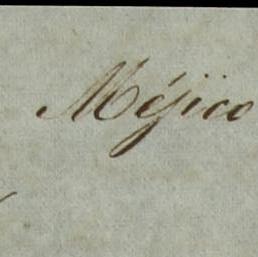 Méjico